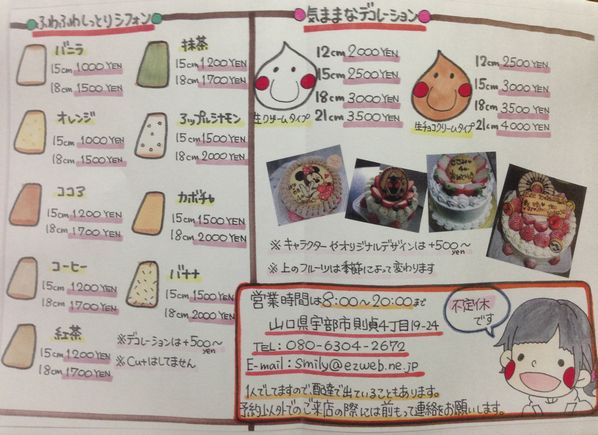 ふわふわしっとりシフォン
バニラ
15cm 1000YEN
18cm 1500YEN
抹茶
15cm 1200YEN
18cm 1700YEN
オレンジ
15cm 1000YEN
18cm 1500YEN
アップルシナモン
15cm 1500YEN
18cm 2000YEN
ココア
15cm 1200YEN
18cm 1700YEN
カボチャ
15cm 1500YEN
18cm 2000YEN
コーヒー
15cm 1200YEN
18cm 1700YEN
バナナ
15cm 1500YEN
18cm 2000YEN
紅茶
15cm 1200YEN
18cm 1700YEN
※デコレーションは+500〜yen
※Cutはしてません
気ままなデコレーション
12cm 2000YEN
15cm 2500YEN
18cm 3000YEN
21cm 3500YEN
生クリームタイプ
12cm 2500YEN
15cm 3000YEN
18cm 3500YEN
21cm 4000YEN
生チョコクリームタイプ
※キャラクターやオリジナルデザインは+500〜yen
※上のフルーツは季節によって変わります
営業時間は8:00〜20:00まで
山口県宇部市則貞4丁目19-24
TEL: 080-6304-2672
E-mail: smily@ezweb.ne.jp
1人でしてますので、配達で出ていることもあります。
予約以外でのご来店の際には前もって連絡をお願いします。
不定休
です